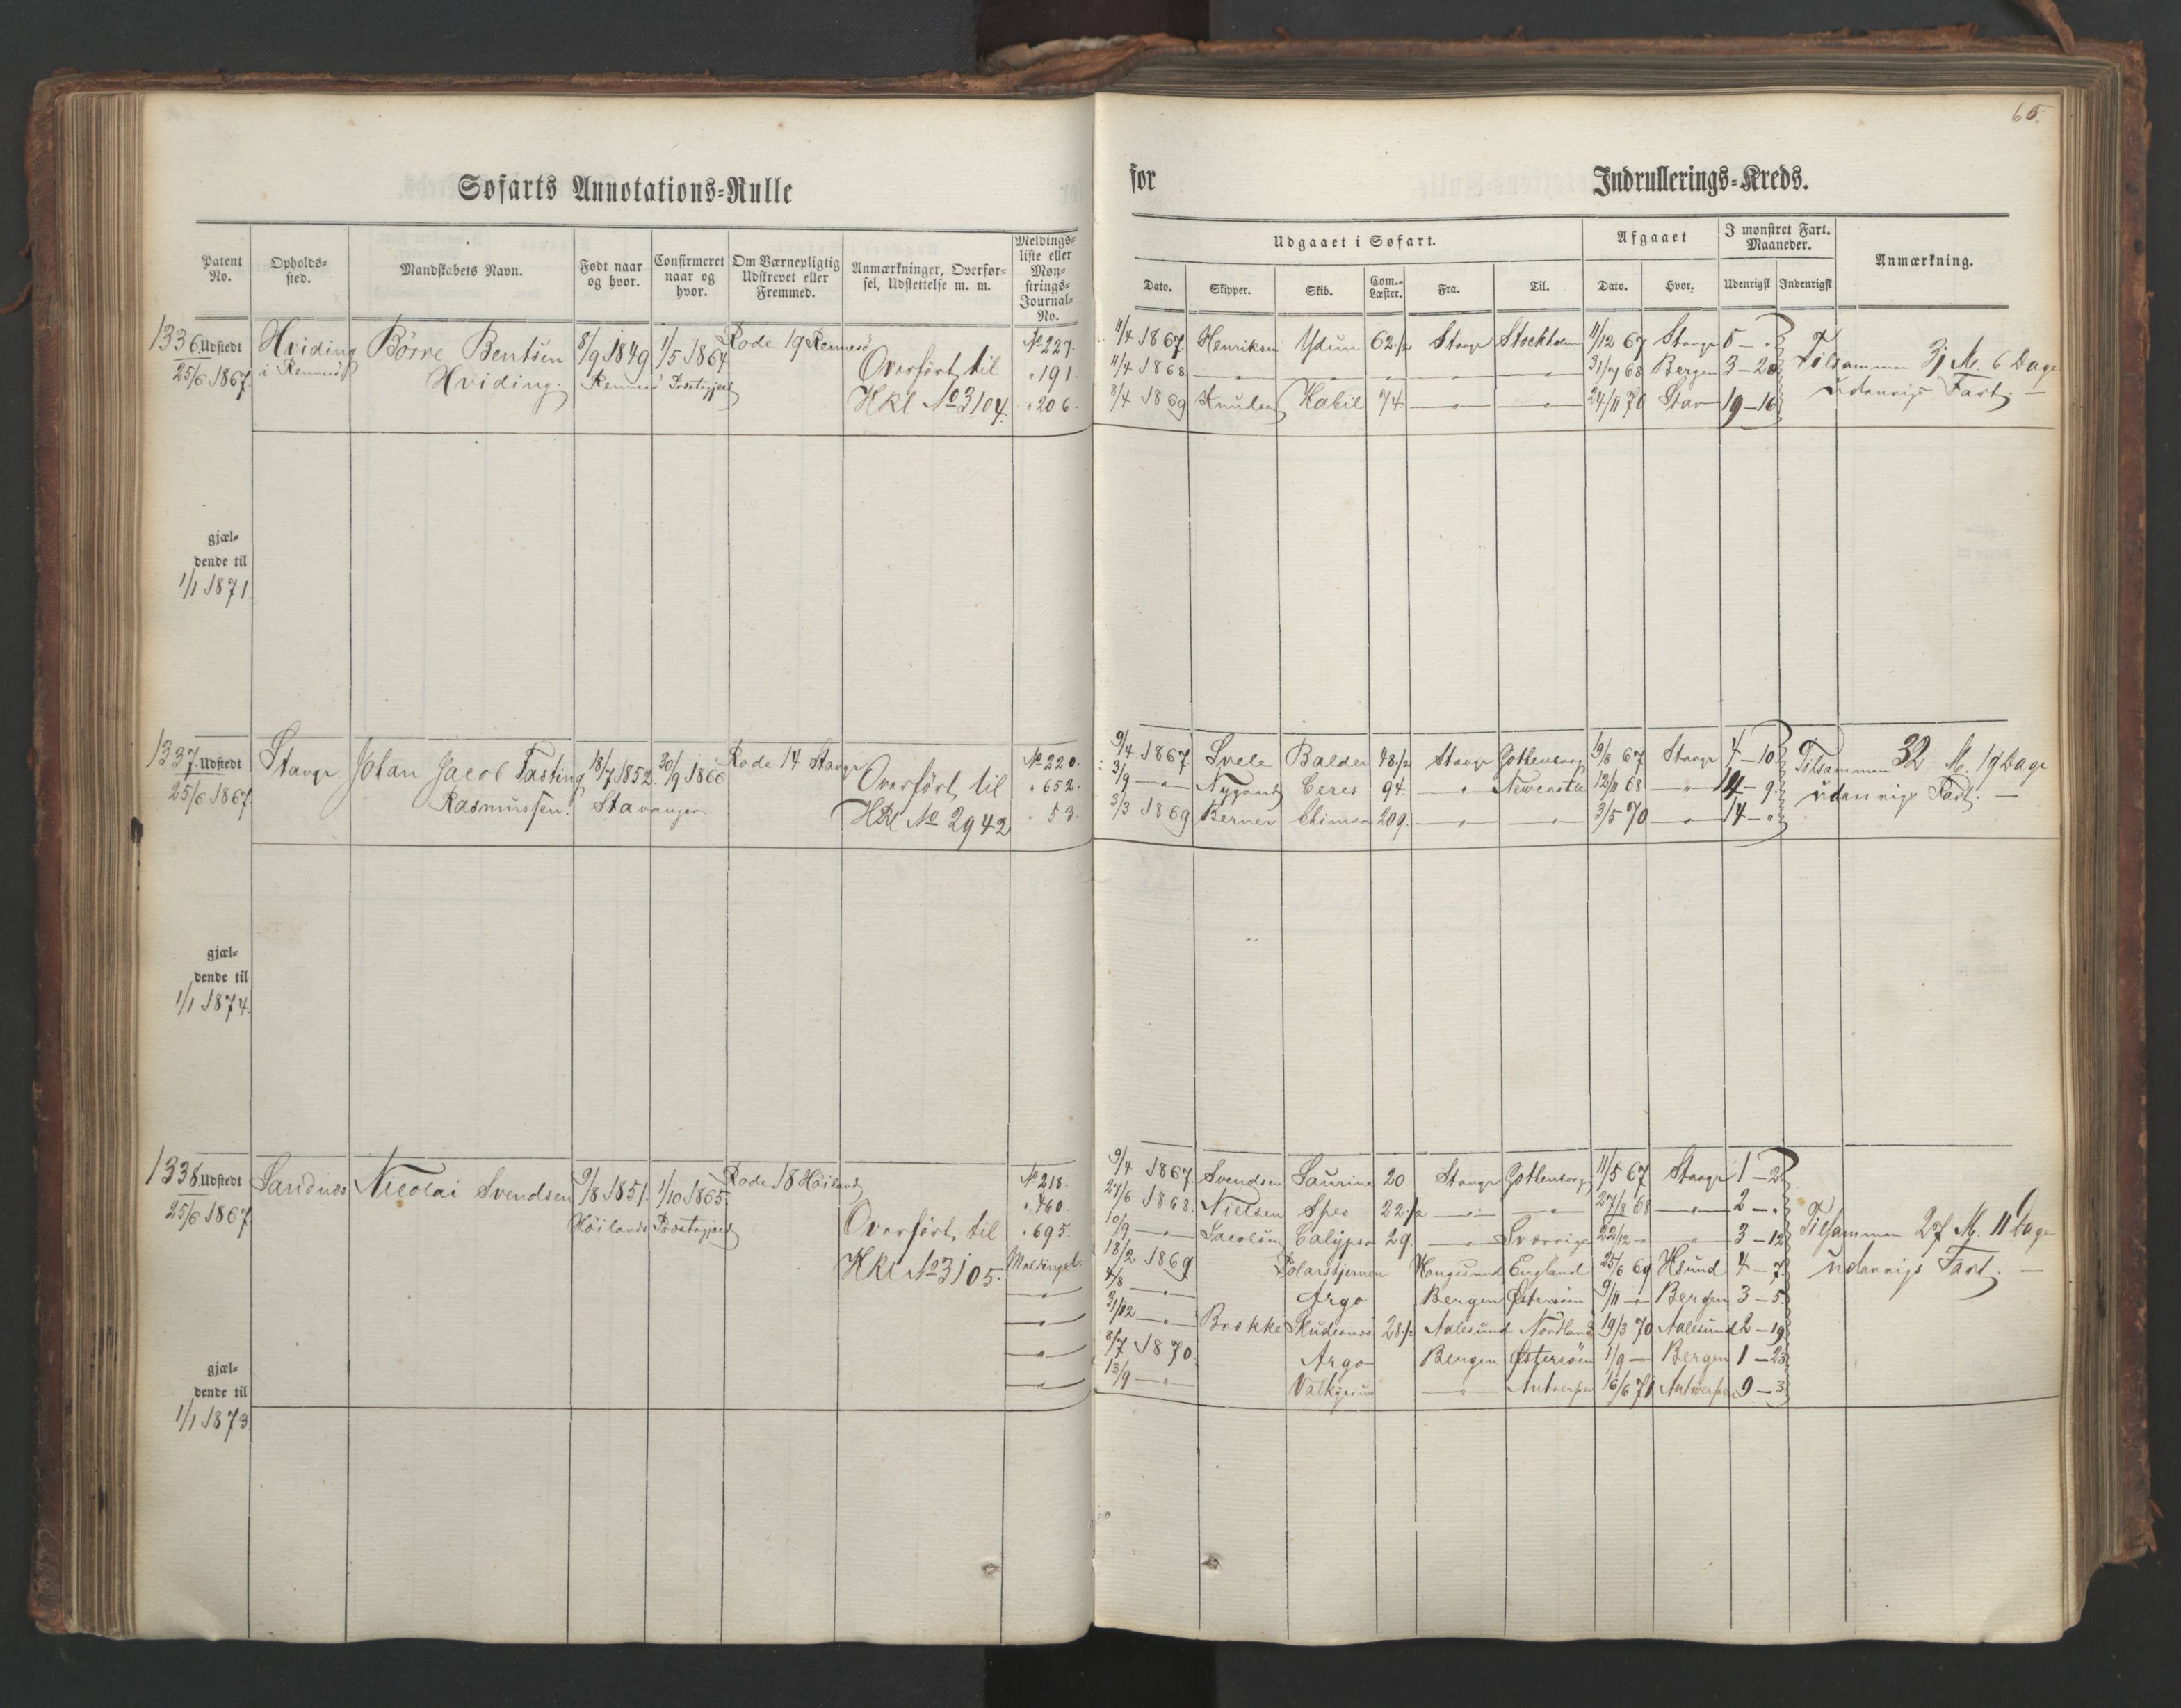 65.
Søfarts Annotations-Rulle
for
Indrullerings-Kreds.
Patent No.
Opholdssted.
Mandskabets Navn.
Født naar og hvor.
Confirmeret naar og hvor.
Om Værnepligtig Udskrevet eller Fremmed.
Anmærkninger, Overførsel, Udslettelse m. m.
Meldingsliste eller Mønstrings-Journal-No.
Udgaaet i Søfart.
Dato.
Skipper.
Skib.
Com.-Læster.
Fra.
Til.
Afgaaet
Dato.
Hvor.
I mønstret Fart. Maaneder.
Udenrigsk
Indenrigsk
Anmærkning.
1336. Udstedt 25/6 1867.
gjældende til 1/1 1871.
Hviding i Rennesö
Börre Bentsen Hviding.
8/9 1849 1/5 1864
Rennesö Præstegjæld
Rode 19 Rennesö
Overfört til Hkl No 3104.
No 227.
" 191.
" 206.
11/4 1867. Henriksen Ydun 62 1/2 Stavgr Stockholm 11/12 67 Stavgr 8 – "
11/4 1868 — " — " — " — " — " 31/7 68 Bergen 3 – 20
8/4 1869 Knudsen Habil — " — " 24/11 70 Stav 19 – 16
Tilsammen 31 M. 6 Dage
udenrigs Fart. —
1337. Udstedt 25/6 1867.
gjældende til 1/1 1874.
Stavgr
Johan Jacob Fasting Rasmussen.
18/7 1852. 30/9 1866
Stavanger.
Rode 14 Stavgr
Overfört til Hkl No 2942
No 220.
" 652.
" 53.
9/4 1867 Svele Balder 48 1/2 Stavgr Gottenborg 19/8 67 Stavgr 4 – 10
3/9 — " Nygaard Ceres 94. — " — Newcastle 12/11 68 — " — 14 – 9.
3/3 1869 Berner 209. — " — " — 3/5 70 — " — 14 – "
Tilsammen 32 M. 19 Dage
udenrigs Fart. —
1338. Udstedt 25/6 1867
gjældende til 1/1 1873
Sandnæs
Nicolai Svendsen
9/8 1851. 1/10 1865.
Höilands Præstegjæld
Rode 18 Höiland
Overfört til Hkl No 3105.
No 218.
" 460.
" 695.
Meldingsl.
— " —
— " —
— " —
— " —
9/4 1867. Svendsen Laurine 20. Stavgr Gottenborg 11/5 67 Stavgr 1 – 2
27/6 1868. Nielsen Spes 22 1/2 — " — " — 27/8 68 — " — 2 – "
10/9 — " Jacobsen Calypso 29. — " — Sverrige 22/12 — " 3 – 12
18/2 1869 Polarstjernen Haugesund England 25/6 69 Hsund 4 – 7
4/8 — " — Argo Bergen Östersöen 9/11 — " Bergen 3 – 5.
31/12 — " — Brekke Skudesnæs 28 1/2 Aalesund Nordland 19/3 70 Aalesund 2 – 19
8/7 1870. Argo Bergen Östersöen 1/9 — Bergen 1 – 23
13/9 — " — — " — Antwerpen 16/6 71 Antwerpen 9 – 3
Tilsammen 27 M. 11 Dage
udenrigs Fart. —